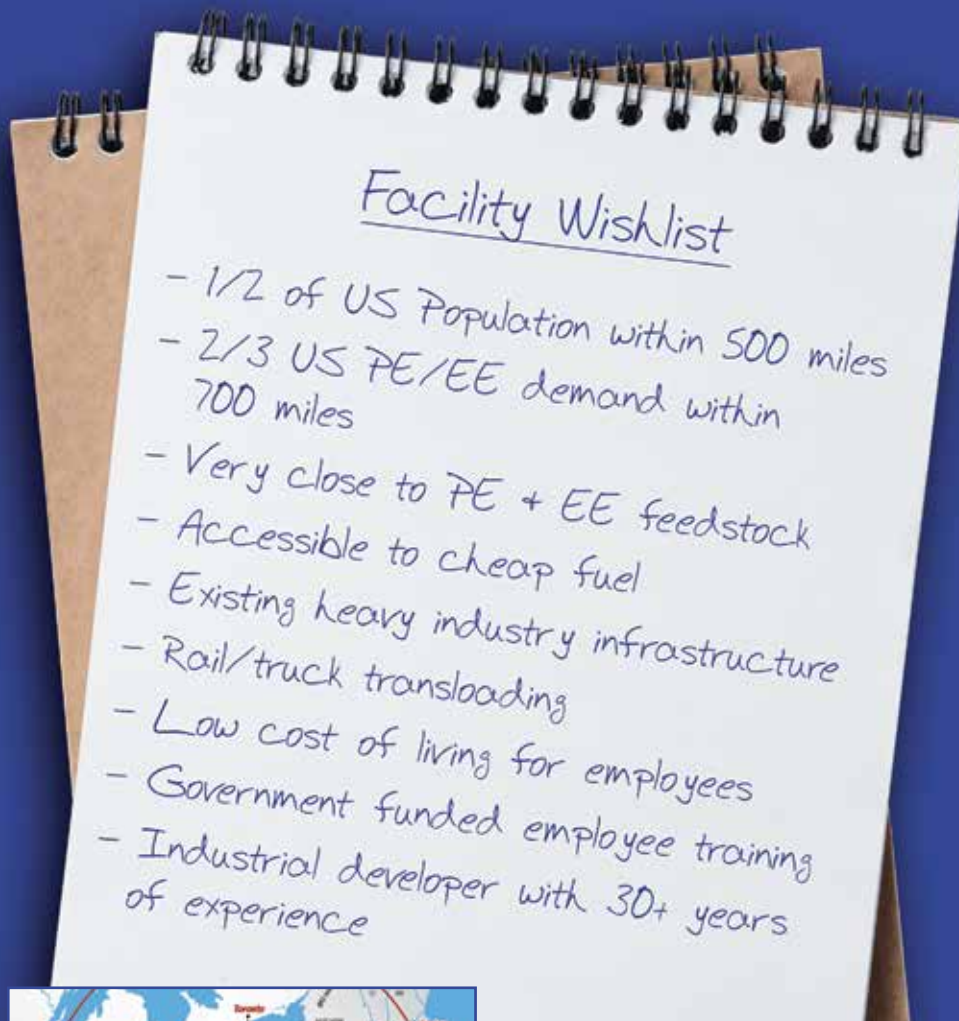 Facility Wishlist
- 1/2 of US Population within 500 miles
- 2/3 US PE/EE demand within
700 miles
- Very close to PE + EE feedstock
- Accessible to cheap fuel
- Existing heavy industry infrastructure
- Rail/truck transloading
- Low cost of living for employees
- Government funded employee training
- Industrial developer with 30+ years
of experience
Toronto